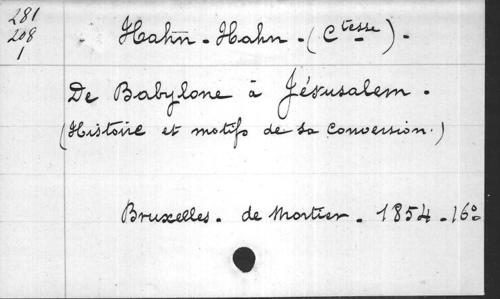 281
208
1
Hahn-Hahn-(Ctesse).
De Babylone à Jérusalem.
(Histoire et motifs de sa conversion.)
Bruxelles. de Mortier. 1854. 16º